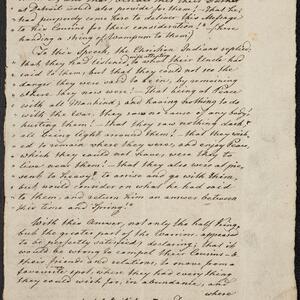 at Detroit could also provide for them! That he,
had purposely come here to deliver this Message
to his Cousins for their consideration! (Here
handing a string of Wampum to them)
To this Speech, the Christian Indians replied,
that they had listened to what their Uncle had
said to them; but that they could not see the
danger they were said to be in, by remaining
where they now were! That being at Peace
with all Mankind, and having nothing to do
with the War, they saw no cause of any body
hurting them! That they saw nothing dark,
all being light around them! that they wish-
ed to remain where they were, and enjoy Peace,
which they could not have, were they to
live near them! That they also were a pre-
sent to heavy to arise and go with them,
but would consider on what he had said
to them, and return Him an answer between
this time and Spring!
With this Answer, not only the half King,
but the greater part of the Warriors appeared
to be perfectly satisfied; declaring, that it
would be wrong to compel their Cousins &
their friends and relations, to move from a
favourite spot, where they had every thing
they could wish for, in abundance, and
where